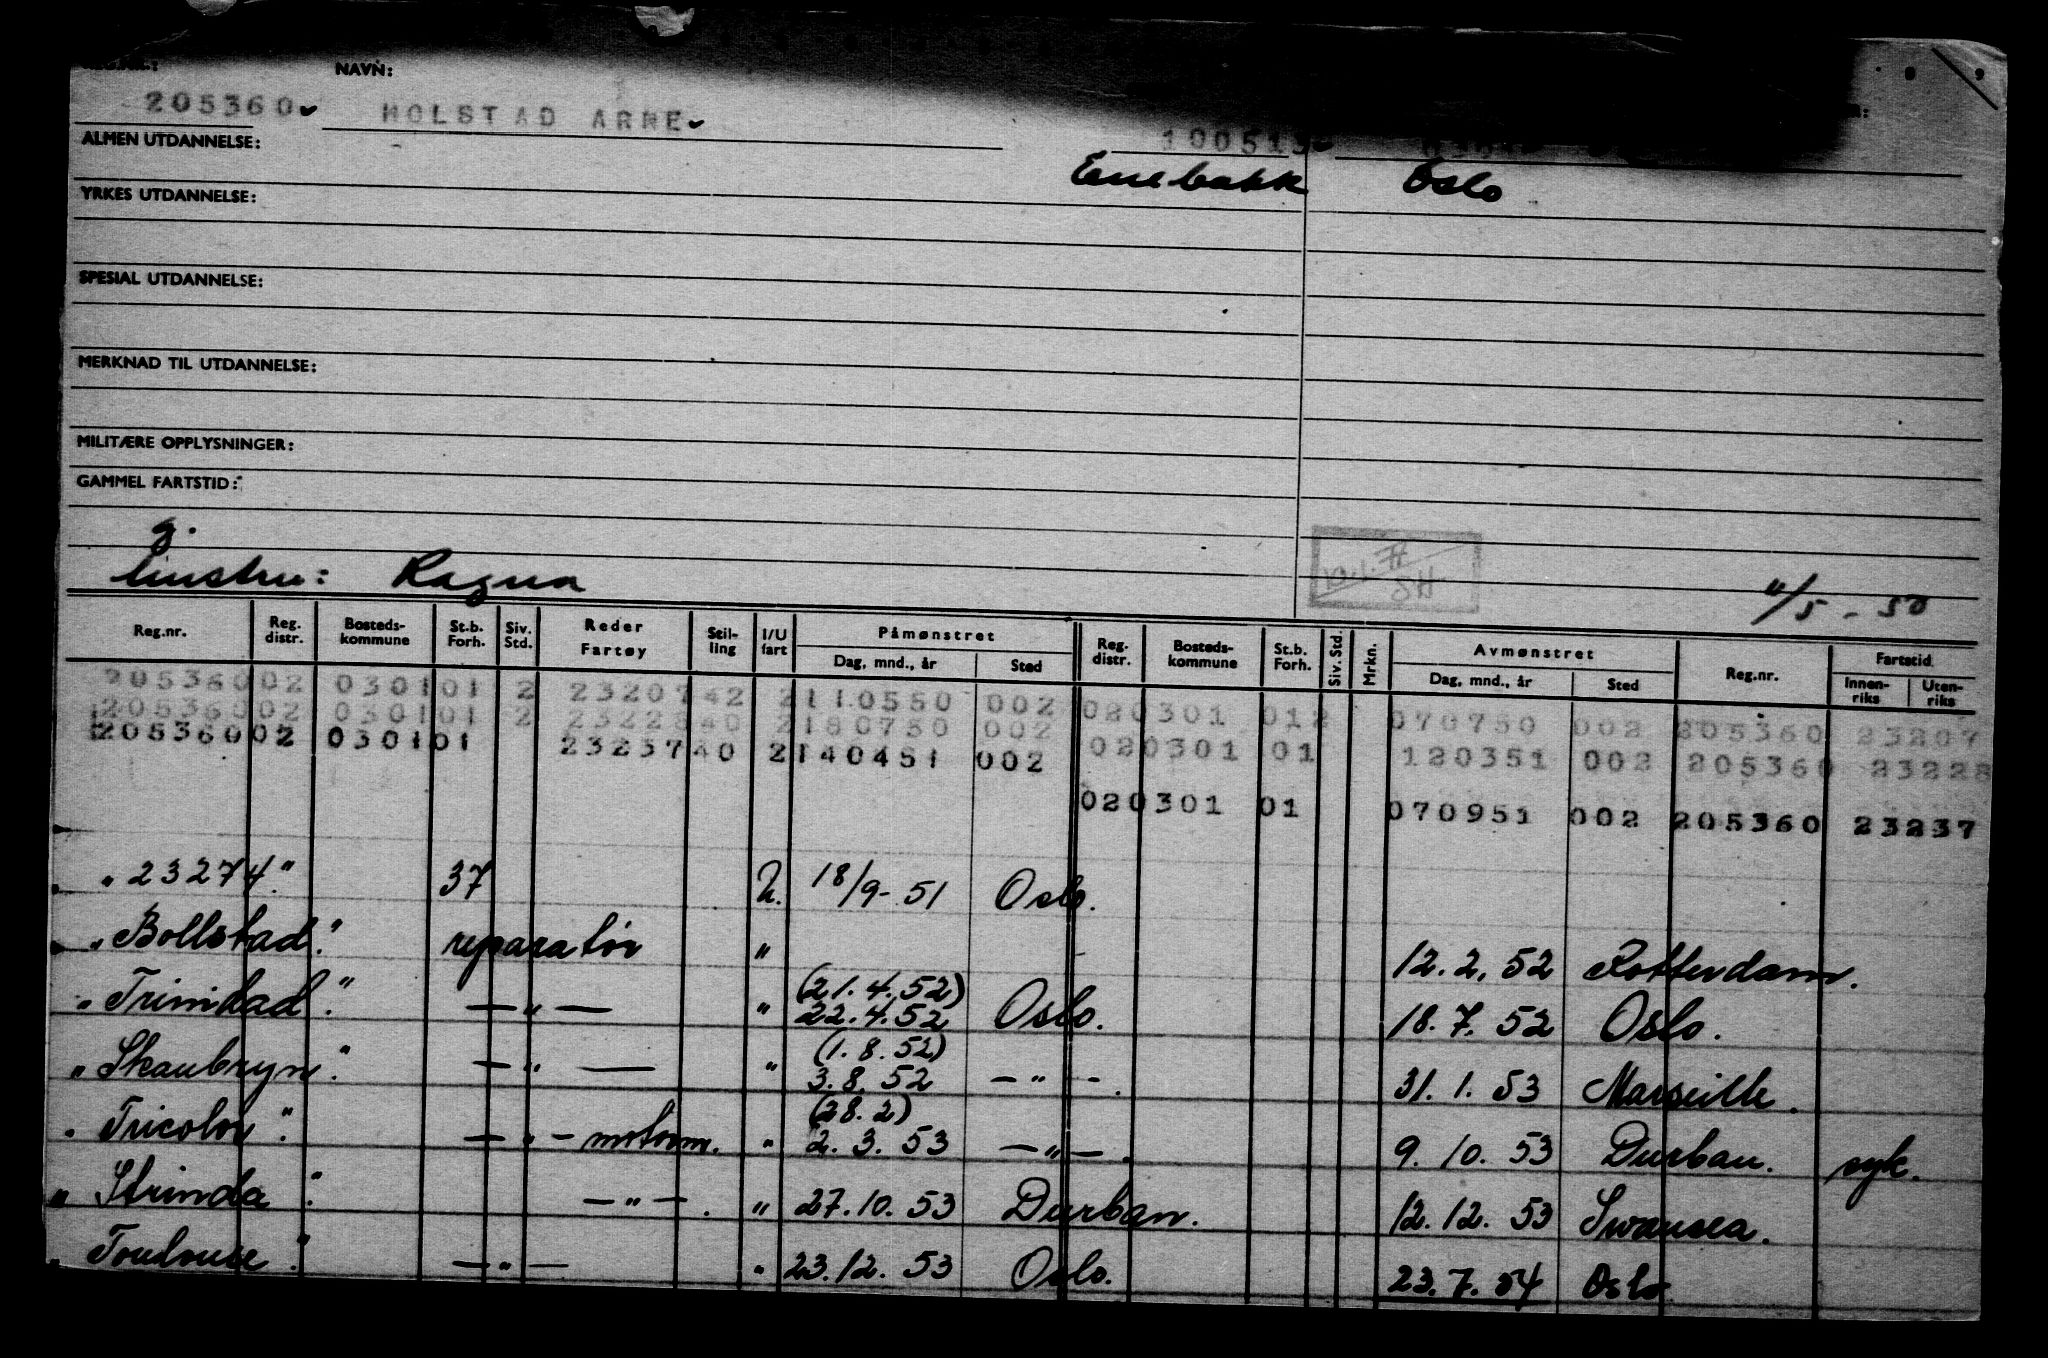 NAVN:
205360 HOLSTAD ARNE
ALMEN UTDANNELSE: 100513
Enebakk Oslo
YRKES UTDANNELSE:
SPESIAL UTDANNELSE:
MERKNAD TIL UTDANNELSE:
MILITÆRE OPPLYSNINGER:
GAMMEL FARTSTID:
g.
hustru: Ragna
SH
11/5 - 50
Reg.nr. Reg. distr. Bosteds- kommune St.b. Forh. Siv. Std. Reder Fartøy Stil- ling I/U fart Påmønstret Dag, mnd., år Sted Reg. distr. Bosteds- kommune St.b. Forh. Siv. Std. Mrkn. Avmønstret Dag, mnd., år Sted Reg.nr. Fartstid Innen- riks Uten- riks
205360 02 0301 01 2 23207 42 2 110550 002 02 0301 01 2 070750 002 205360 23207
205360 02 0301 01 2 23228 40 2 180750 002 02 0301 01 120351 002 205360 23228
205360 02 0301 01 23237 40 2 140451 002 02 0301 01 070951 002 205360 23237
" 23274." 37 2. 18/9- 51 Oslo.
" Bollstad." reparatör " 12. 2. 52 Rotterdam.
" Trinidad." — " — " (21. 4. 52) 22. 4. 52 Oslo. 18. 7. 52 Oslo.
" Skaubryn." — " — " (1. 8. 52) 3. 8. 52 — " —. 31. 1. 53 Marseille.
" Tricolor." — " — motorm. " (28. 2) 2. 3. 53 — " —. 9. 10. 53 Durban. syk.
" Strinda." — " —. " 27. 10. 53 Durban. 12. 12. 53 Swansea.
" Toulouse." — " — " 23. 12. 53 Oslo. 23. 7. 54 Oslo